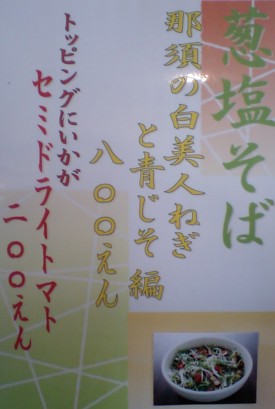 葱塩そば
那須の白美人ねぎ
と青じそ編
八〇〇えん
トッピングにいかが
セミドライトマト
二〇〇えん